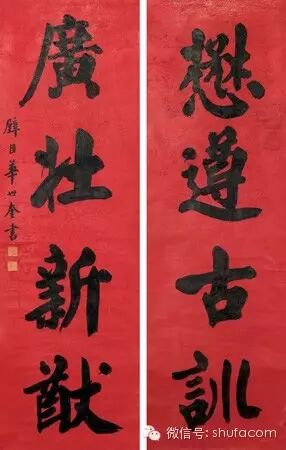 懋遵古訓
廣壯新猷
璧臣華世奎書
微信号: shufacom